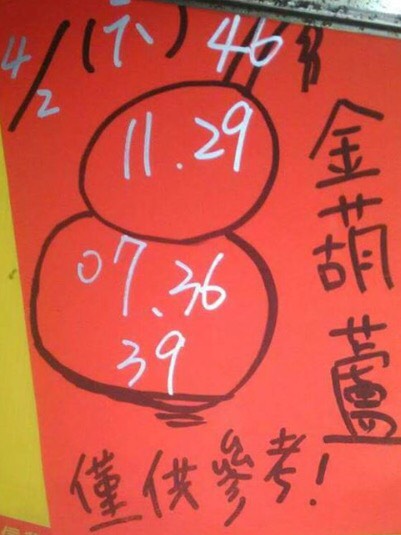 4/2 (六) 46
11.29
07.36
39
金葫蘆
僅供參考!